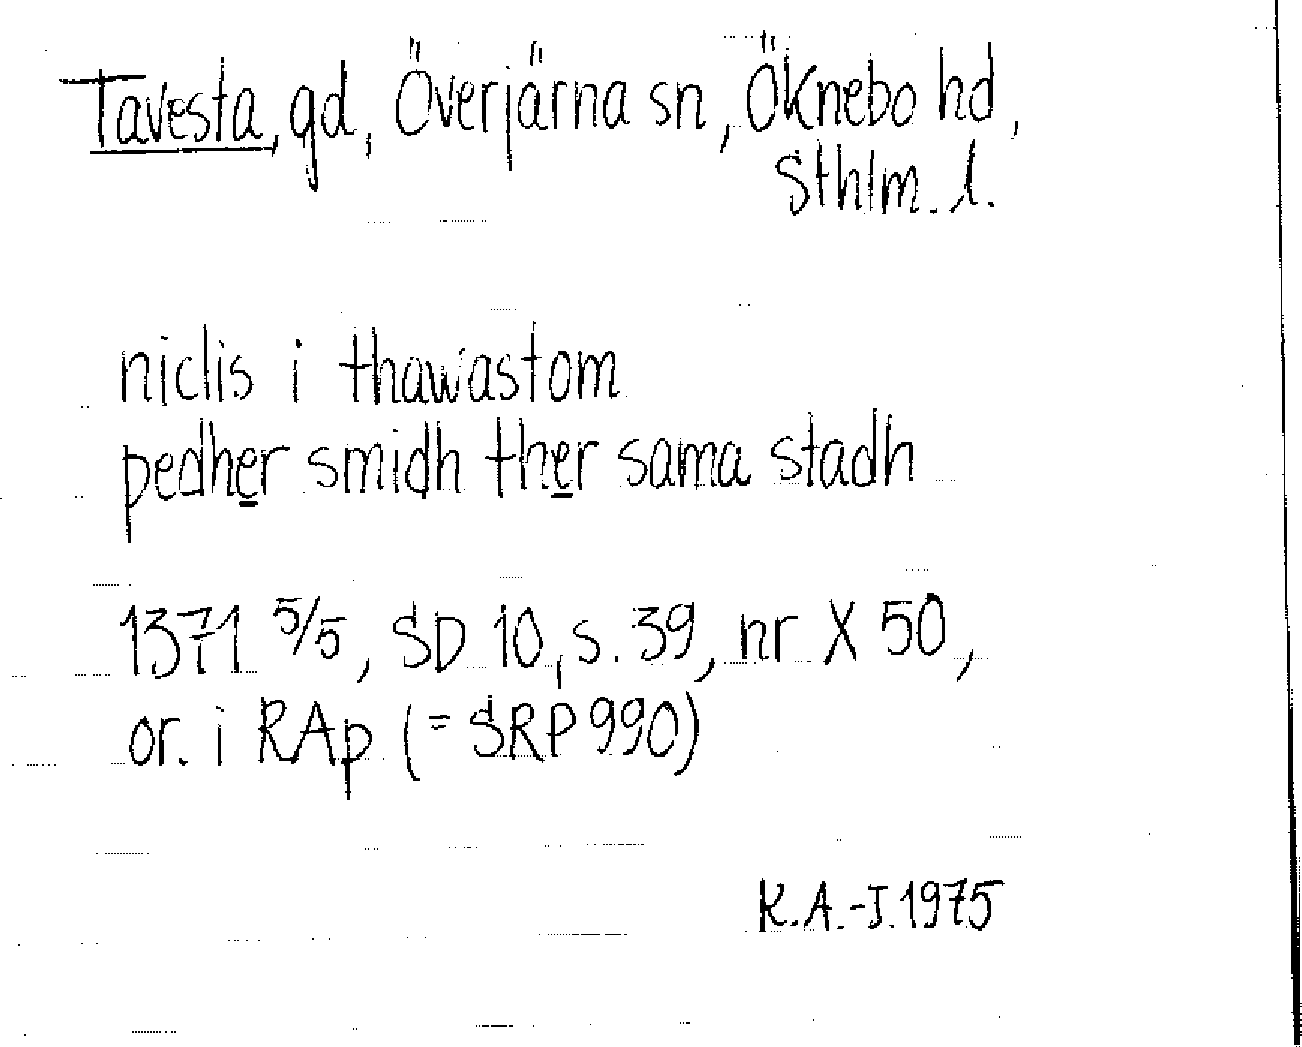 Tavesta, gd, Överjärna sn, Öknebo hd,
Sthlm. l.
niclis i thawastom
pedher smidh ther sama stadh
1371 5/5, SD 10, s. 39, nr X 50,
or. i RAp (= SRP 990)
K.A.-J. 1975